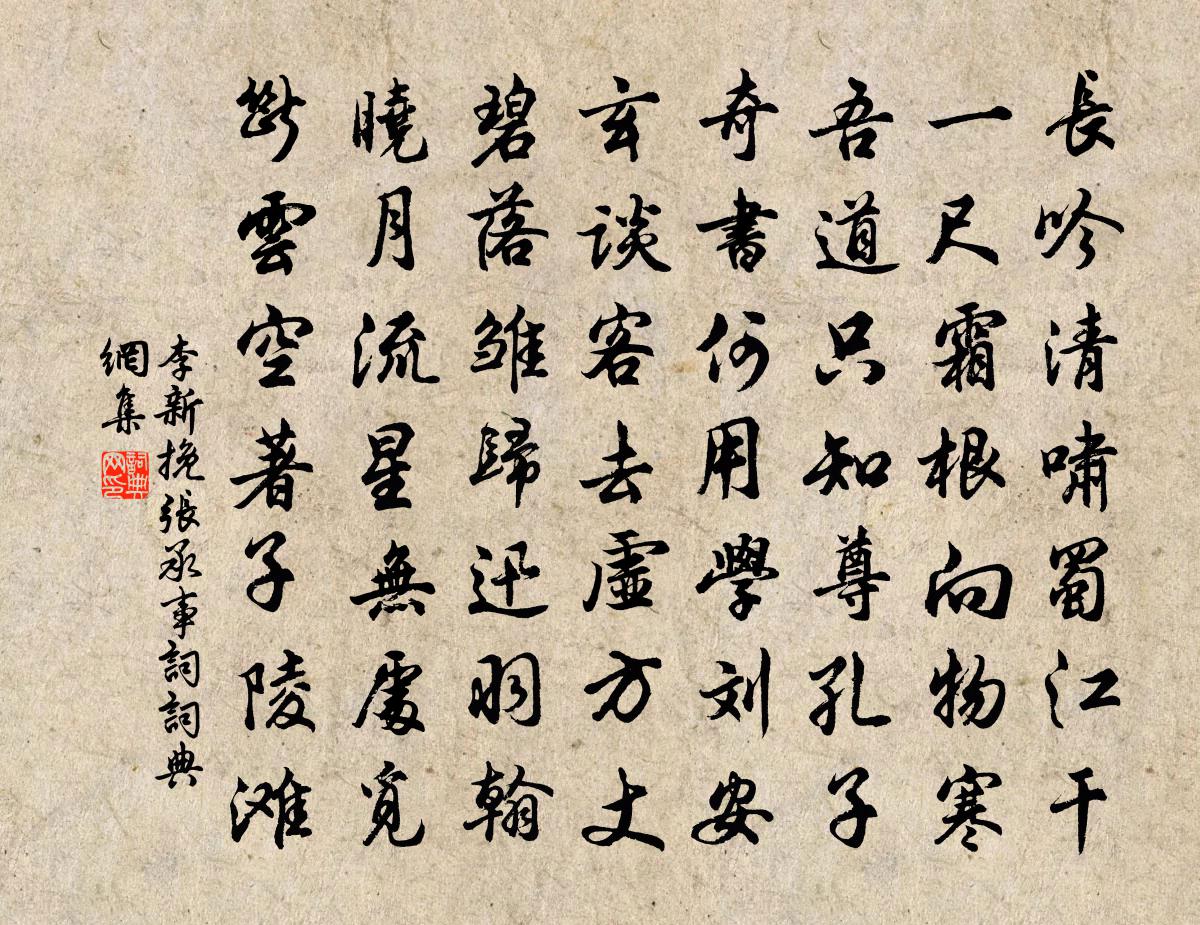 長吟清嘯蜀江干
一尺霜根向物寒
吾道只知尊孔子
奇書何用學刘安
玄談客去虛方丈
碧落雏歸迅羽翰
曉月流星無處覓
斷雲空著子陵滩
李新挽張承事詞詞典
網集
詞典
网印